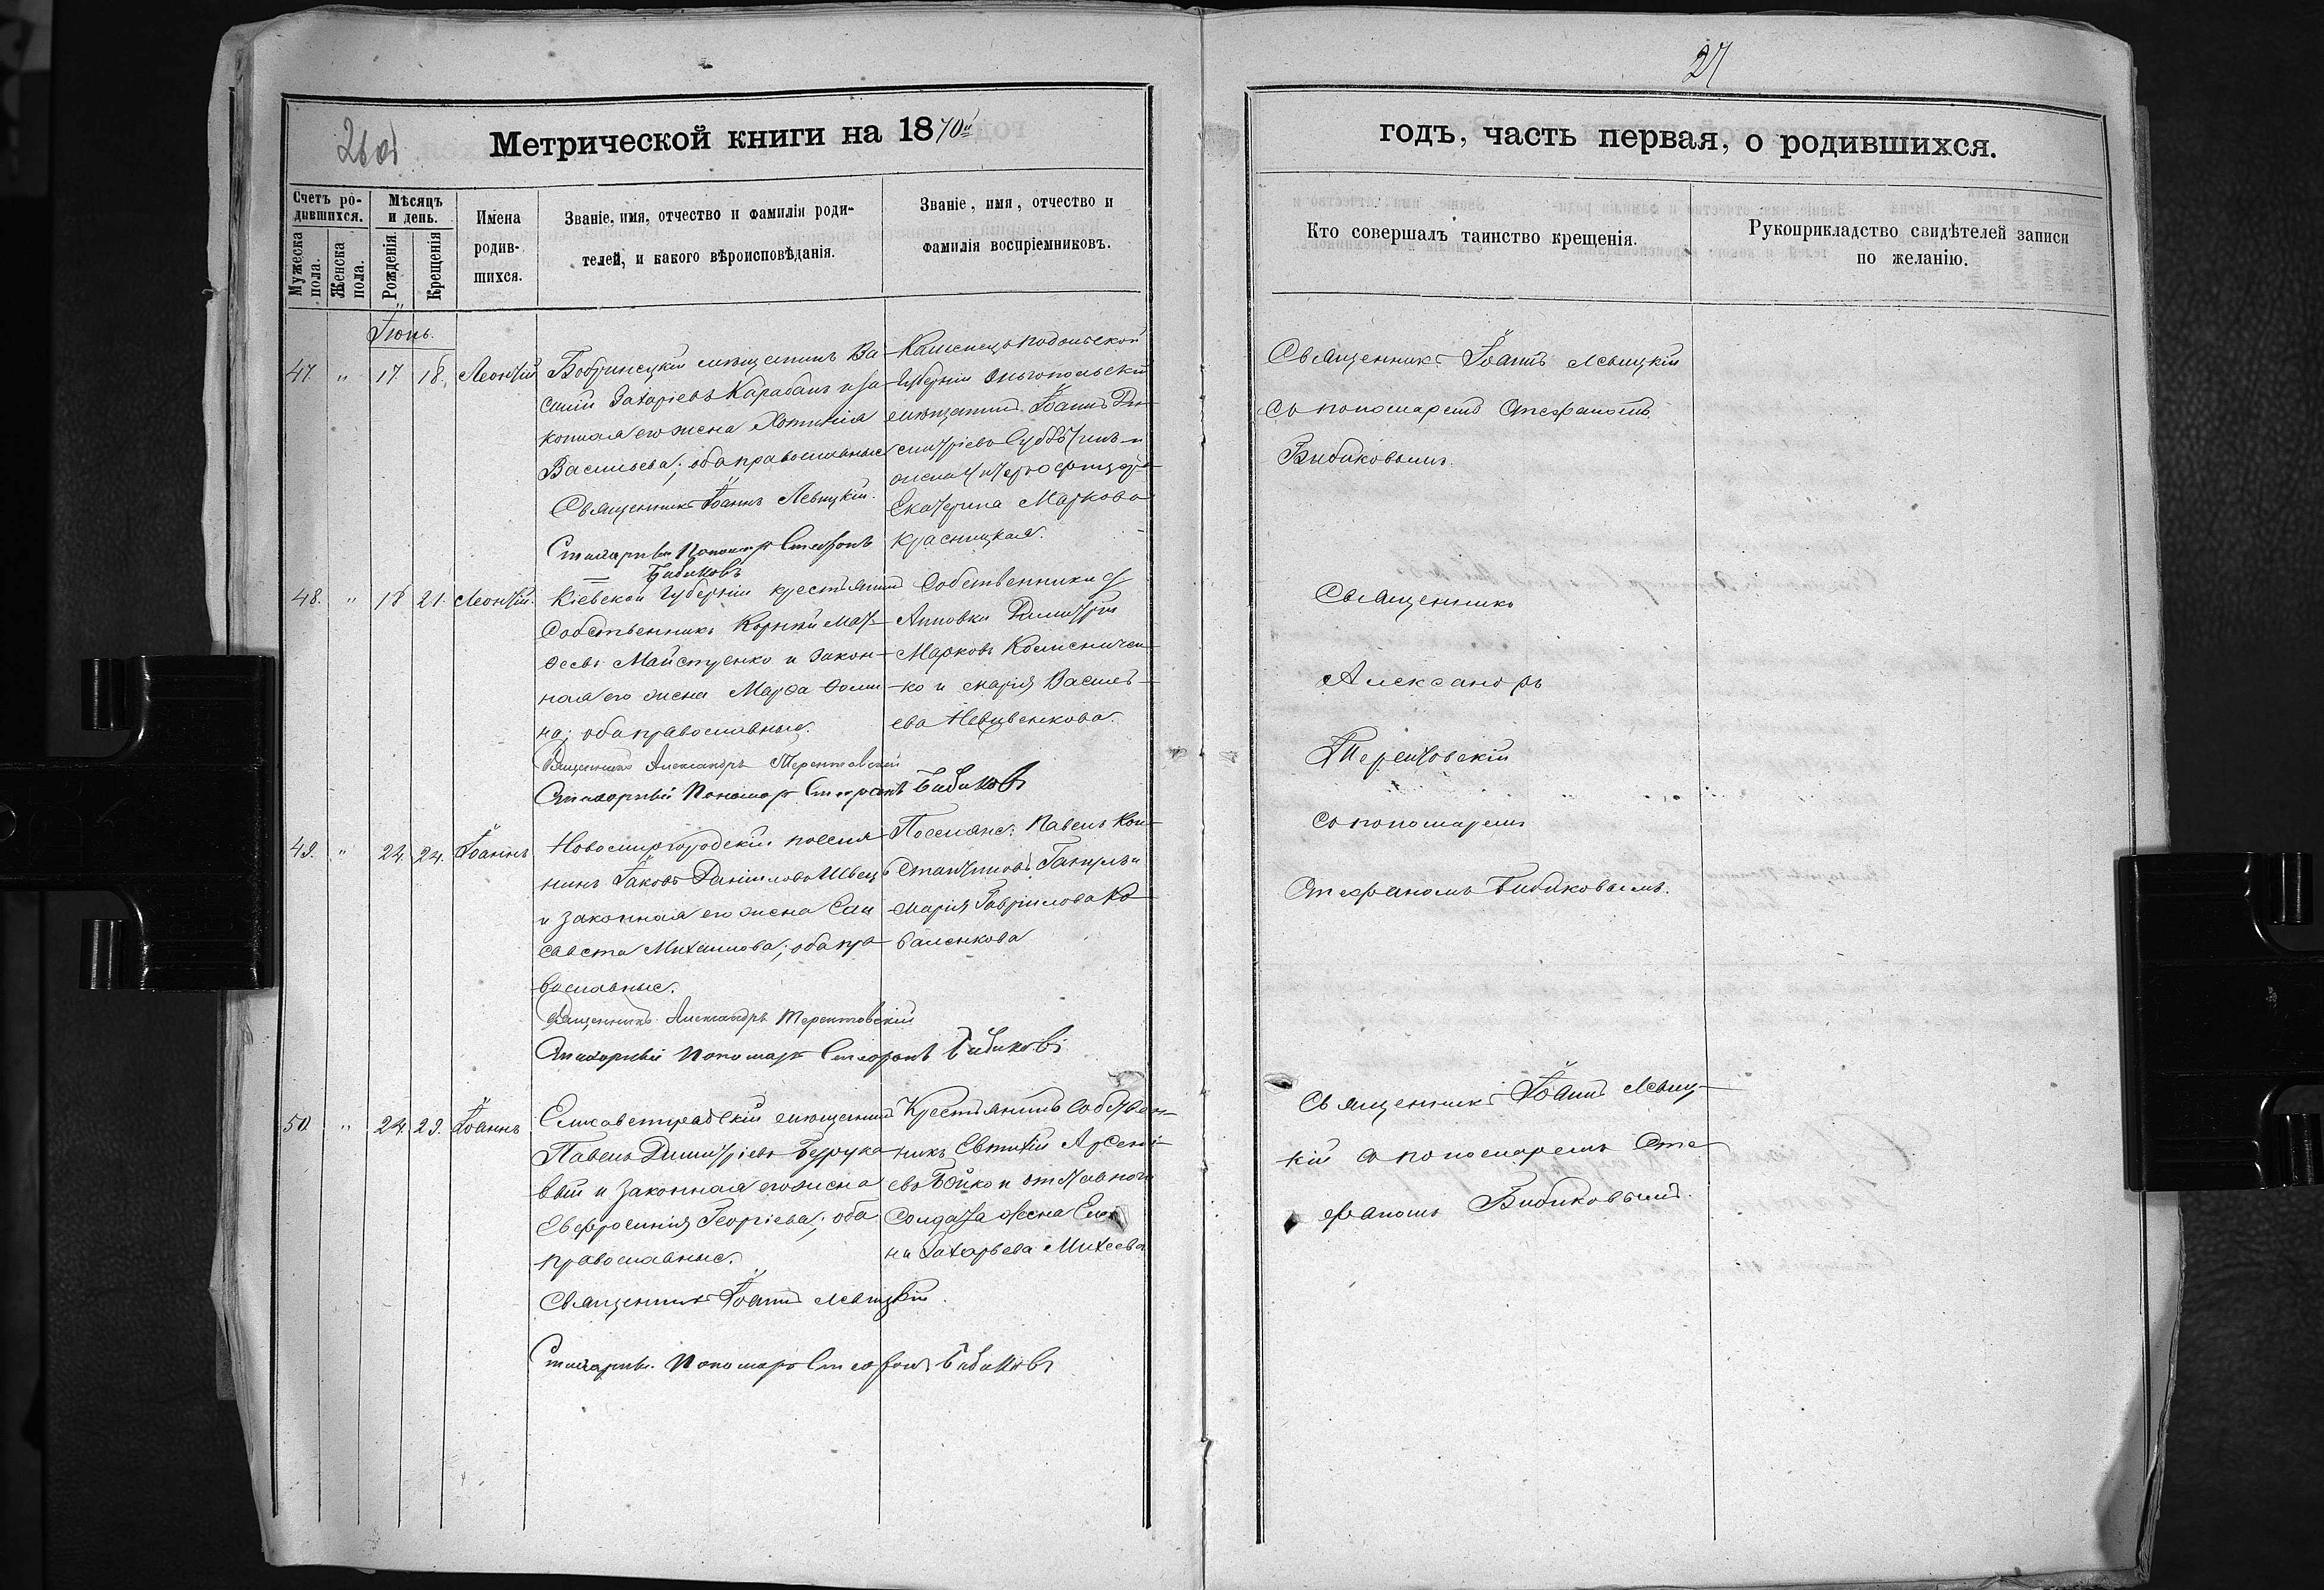 27
260б
Метрической книги на 1870й
годъ, часть первая, о родившихся.
Счетъ родившихся.
Мужеска пола.
Женска пола.
Мѣсяцъ и день.
Рожденія.
Крещенія
Имена родившихся.
Званіе, имя, отчество и фамилія родителей, и какого вѣроисповѣданія.
Званіе, имя, отчество и фамилія воспріемниковъ.
Кто совершалъ таинство крещенія.
Рукоприкладство свидѣтелей записи по желанію.
Іюнь.
47. " 17 18. Леонтій
Бобринецкій мѣщанинъ Ва-
силій Захаріевъ Карабанъ и за-
конная его жена Хотинія
Васильева; оба православные
Священникъ Іоаннъ Левицкій.
Стихарный Пономарь Стефанъ
Бибиковъ
Каменецъ подольской
Губерніи Ольгопольскій
мѣщанинъ Іоаннъ Ди-
митріевъ
жена унтеръ офицера
Екатерина Маркова
Красницкая.
Священникъ Іоаннъ Левицкій
съ пономаремъ Стефаномъ
Бибиковымъ.
48. " 18 21. Леонтій.
Кіевской Губерніи крестьянинъ
Собственникъ Корній Мат-
ѳеевъ Майстренко и закон-
ная его жена Марѳа Ѳоми-
на; оба православные.
Священникъ Александръ Терентовскій
Стихарный Пономарь Стефанъ Бибиковъ
Собственники д.
Анновки Димитрій
Марковъ
ко и Марія Василь-
ева
Священникъ
Александръ
Терентовскій
съ пономаремъ
Стефаномъ Бибиковымъ.
49. " 24. 24. Іоаннъ
Новомиргородскій поселя-
нинъ Іаковъ Даніиловъ Швецъ
и законная его жена Ели-
савета Михаилова; оба пра-
вославные.
Священникъ Александръ Терентовскій
Стихарный Пономарь Стефанъ Бибиковъ
Поселяне: Павелъ Кон-
стантиновъ и
Марія Гавріилова Ко-
валенкова
50. " 24. 29. Іоаннъ
Елисаветградскій мѣщанинъ
Павелъ Димитріевъ
вый и законная его жена
Евфросинія Георгіева; оба
православные.
Священникъ Іоаннъ Левицкій.
Стихарный Пономарь Стефанъ Бибиковъ
Крестьянинъ собствен-
никъ Евтихій Арсені-
евъ Бойко и отставного
Солдата жена Еле-
на Захарьева Михеева
Священникъ Іоаннъ Левиц-
кій съ пономаремъ Сте-
фаномъ Бибиковымъ.